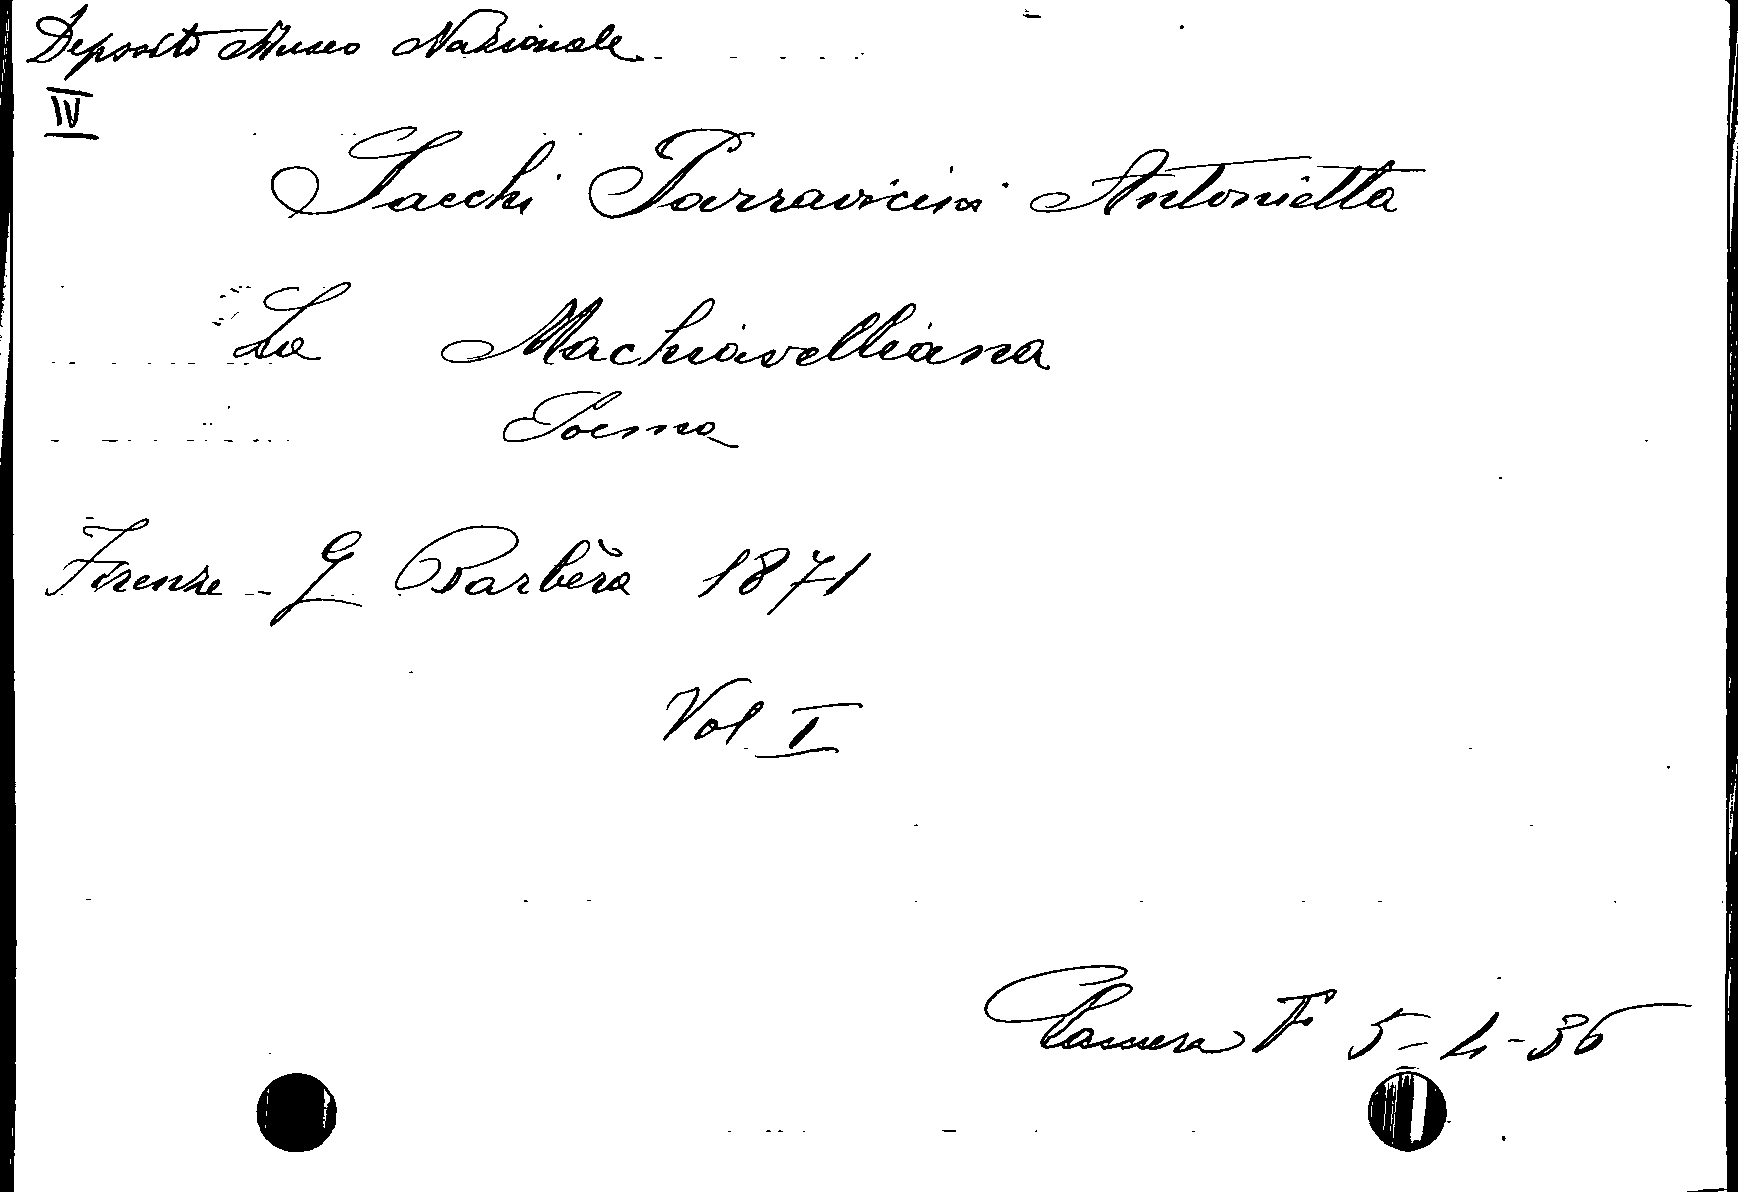 Deposito Museo Nazionale
IV
Sacchi Parravicini Antonietta
La Machiavelliana
Poema
Firenze - G Barbèra 1871
Vol I
Camera F 5-4-36